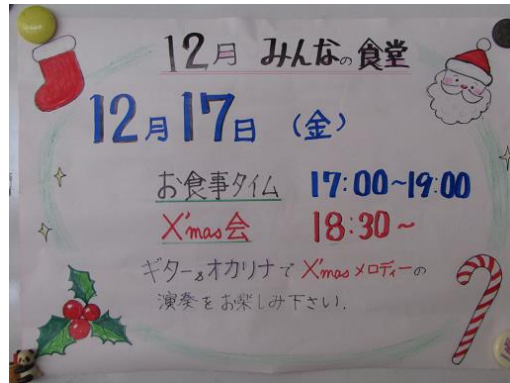 12月 みんなの食堂
12月17日 (金)
お食事タイム 17:00~19:00
X'mas会 18:30~
ギター&オカリナで X'mas メロディーの
演奏をお楽しみ下さい.